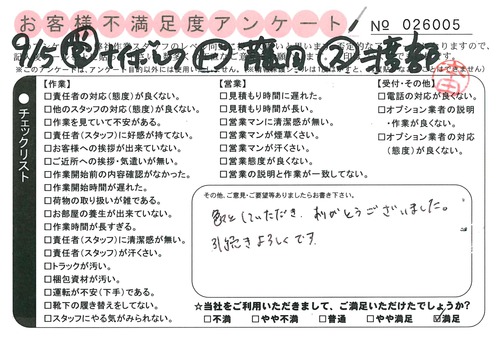 お客様不満足度アンケート
№ 026005
※このアンケートは、アンケート目的以外には使用いたしません。
チェックリスト
【作業】
□責任者の対応(態度)が良くない。
□他のスタッフの対応(態度)が良くない。
□作業を見ていて不安がある。
□責任者(スタッフ)に好感が持てない。
□お客様への挨拶が出来ていない。
□ご近所への挨拶・気遣いが無い。
□作業開始前の内容確認がなかった。
□作業開始時間が遅れた。
□荷物の取り扱いが雑である。
□お部屋の養生が出来ていない。
□作業時間が長すぎる。
□責任者(スタッフ)に清潔感が無い。
□責任者(スタッフ)が汗くさい。
□トラックが汚い。
□梱包資材が汚い。
□運転が不安(下手)である。
□靴下の履き替えをしてない。
□スタッフにやる気がみられない。
【営業】
□見積もり時間に遅れた。
□見積もり時間が長い。
□営業マンに清潔感が無い。
□営業マンが煙草くさい。
□営業マンが汗くさい。
□営業態度が良くない。
□営業の説明と作業が一致してない。
【受付・その他】
□電話の対応が良くない。
□オプション業者の説明・作業が良くない。
□オプション業者の対応(態度)が良くない。
その他、ご意見・ご要望等ありましたらお書き下さい。
ありがとうございました。
引続きよろしくです
☆当社をご利用いただきまして、ご満足いただけたでしょうか?
□不満 □やや不満 □普通 □やや満足 ☑満足